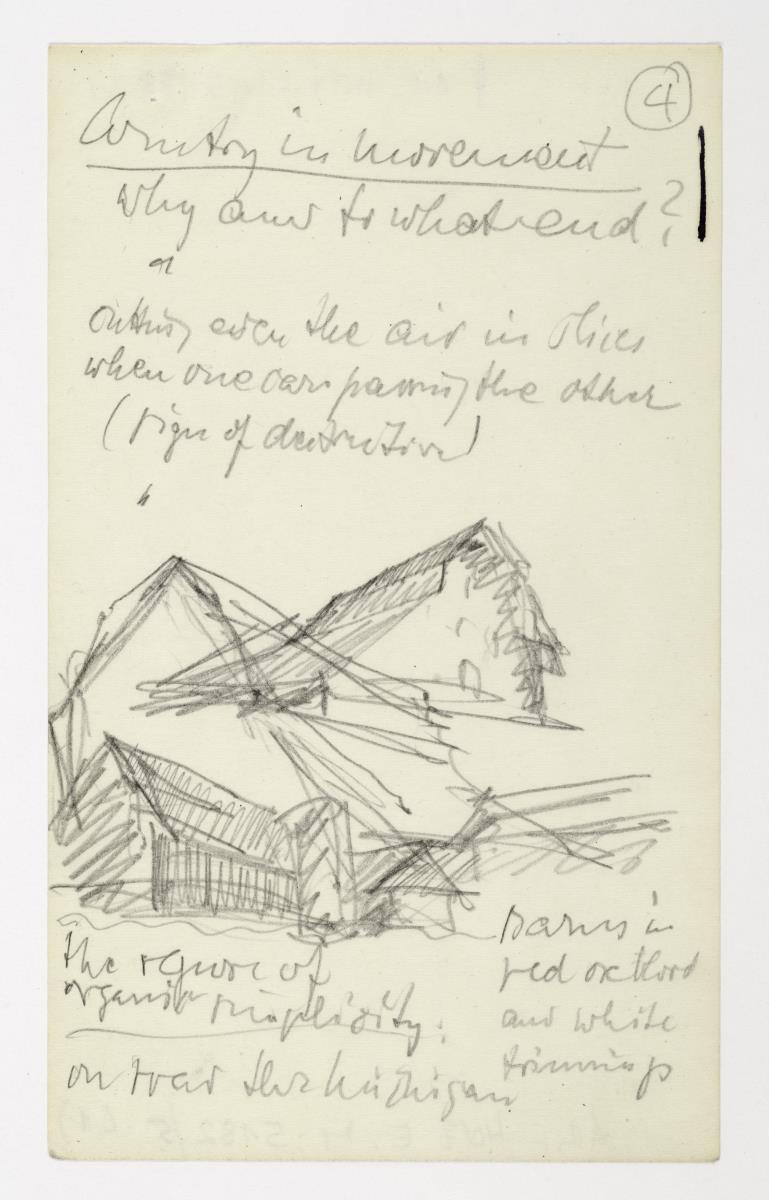 4
Country in movement
why and to what end?
"
cutting even the air in slices
when one cars passing the other
(sign of destructive)
"
barns in
the repose of
red oxblood
organic simplicity.
and white
trimmings
on road thr Michigan